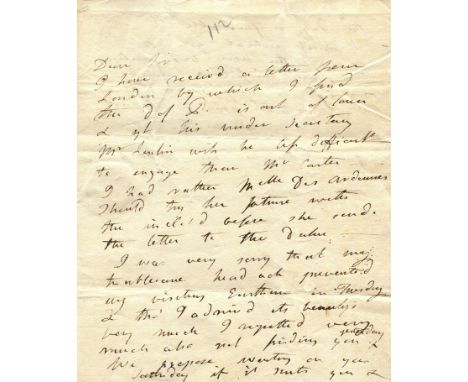 112
Dear
I have received a letter from
London by which I find
the D of D. is out of town
& yt his under Secretary
Mr will be less difficult
to engage than Mr Carter
I had rather Melle Des Ardennes
should try her fortune with
the inclos'd before she sends
the letter to the Duke.
I was very sorry that my
troublesome head ach prevented
my visiting on Tuesday
& tho' I admir'd its beautys
very much I regretted very
much also not finding you yesterday
We propose waiting on you
Saturday if it suits you &